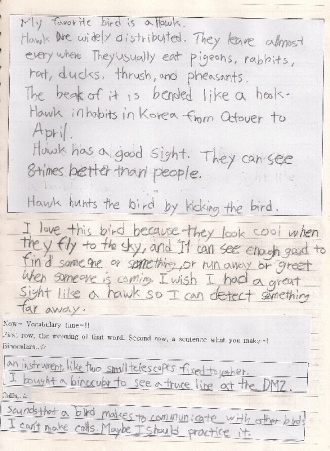 My favorite bird is a Hawk.
Hawk are widely distributed. They leave allmost
every where They usually eat pigeons, rabbits,
rat, ducks. thrush, and pheasants.
The beak of it is bended like a hook.
Hawk inhabits in Korea from Octover to
April.
Hawk has a good sight. They can see
8 times better than people.
Hawk hunts the bird by kicking the bird.
I love this bird because they look cool when
they fly to the sky, and It can see enough good to
find someone or something, or run away or greet
when someone is coming I wish I had a great
sight like a hawk so I can detect something
far away.
Now~ Vocabulary time~!!
First row, the meaning of that word. Second row, a sentence what you make~!
Binoculars
an instrument like two small telescopes fixed together.
I bought a binocular to see a truce line at the DMZ.
Sounds that a bird makes to communicate with other birds
I can't make calls. Maybe I should practice it.